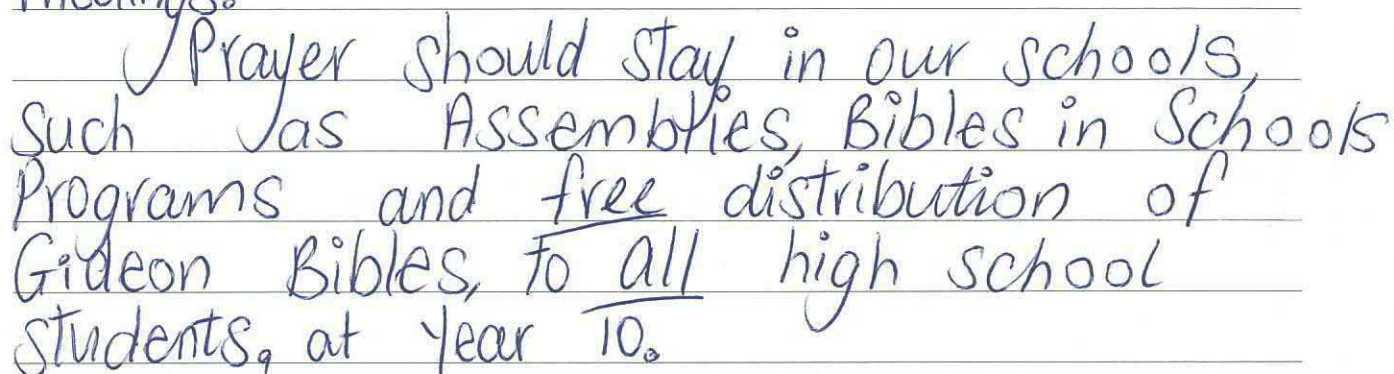 meetings.
Prayer should stay in our schools,
such as Assemblies, Bibles in Schools
Programs and free distribution of
Gideon Bibles, to all high school
students, at year 10.